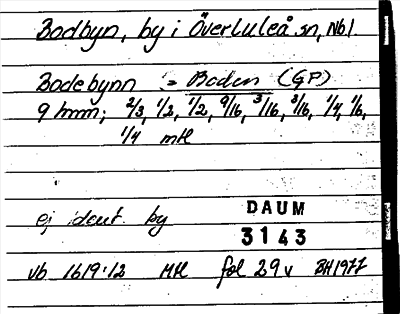 Bodbyn, by i Överluleå sn, Nbl.
Bodebynn := Boden (GP)
9 hmm; 2/3, 1/2, 1/2, 9/16, 3/16, 3/16, 1/4, 1/6,
1/4 mtl
ej ident. by
DAUM
3143
vb 1619:12 Mtl fol 29v BH1977